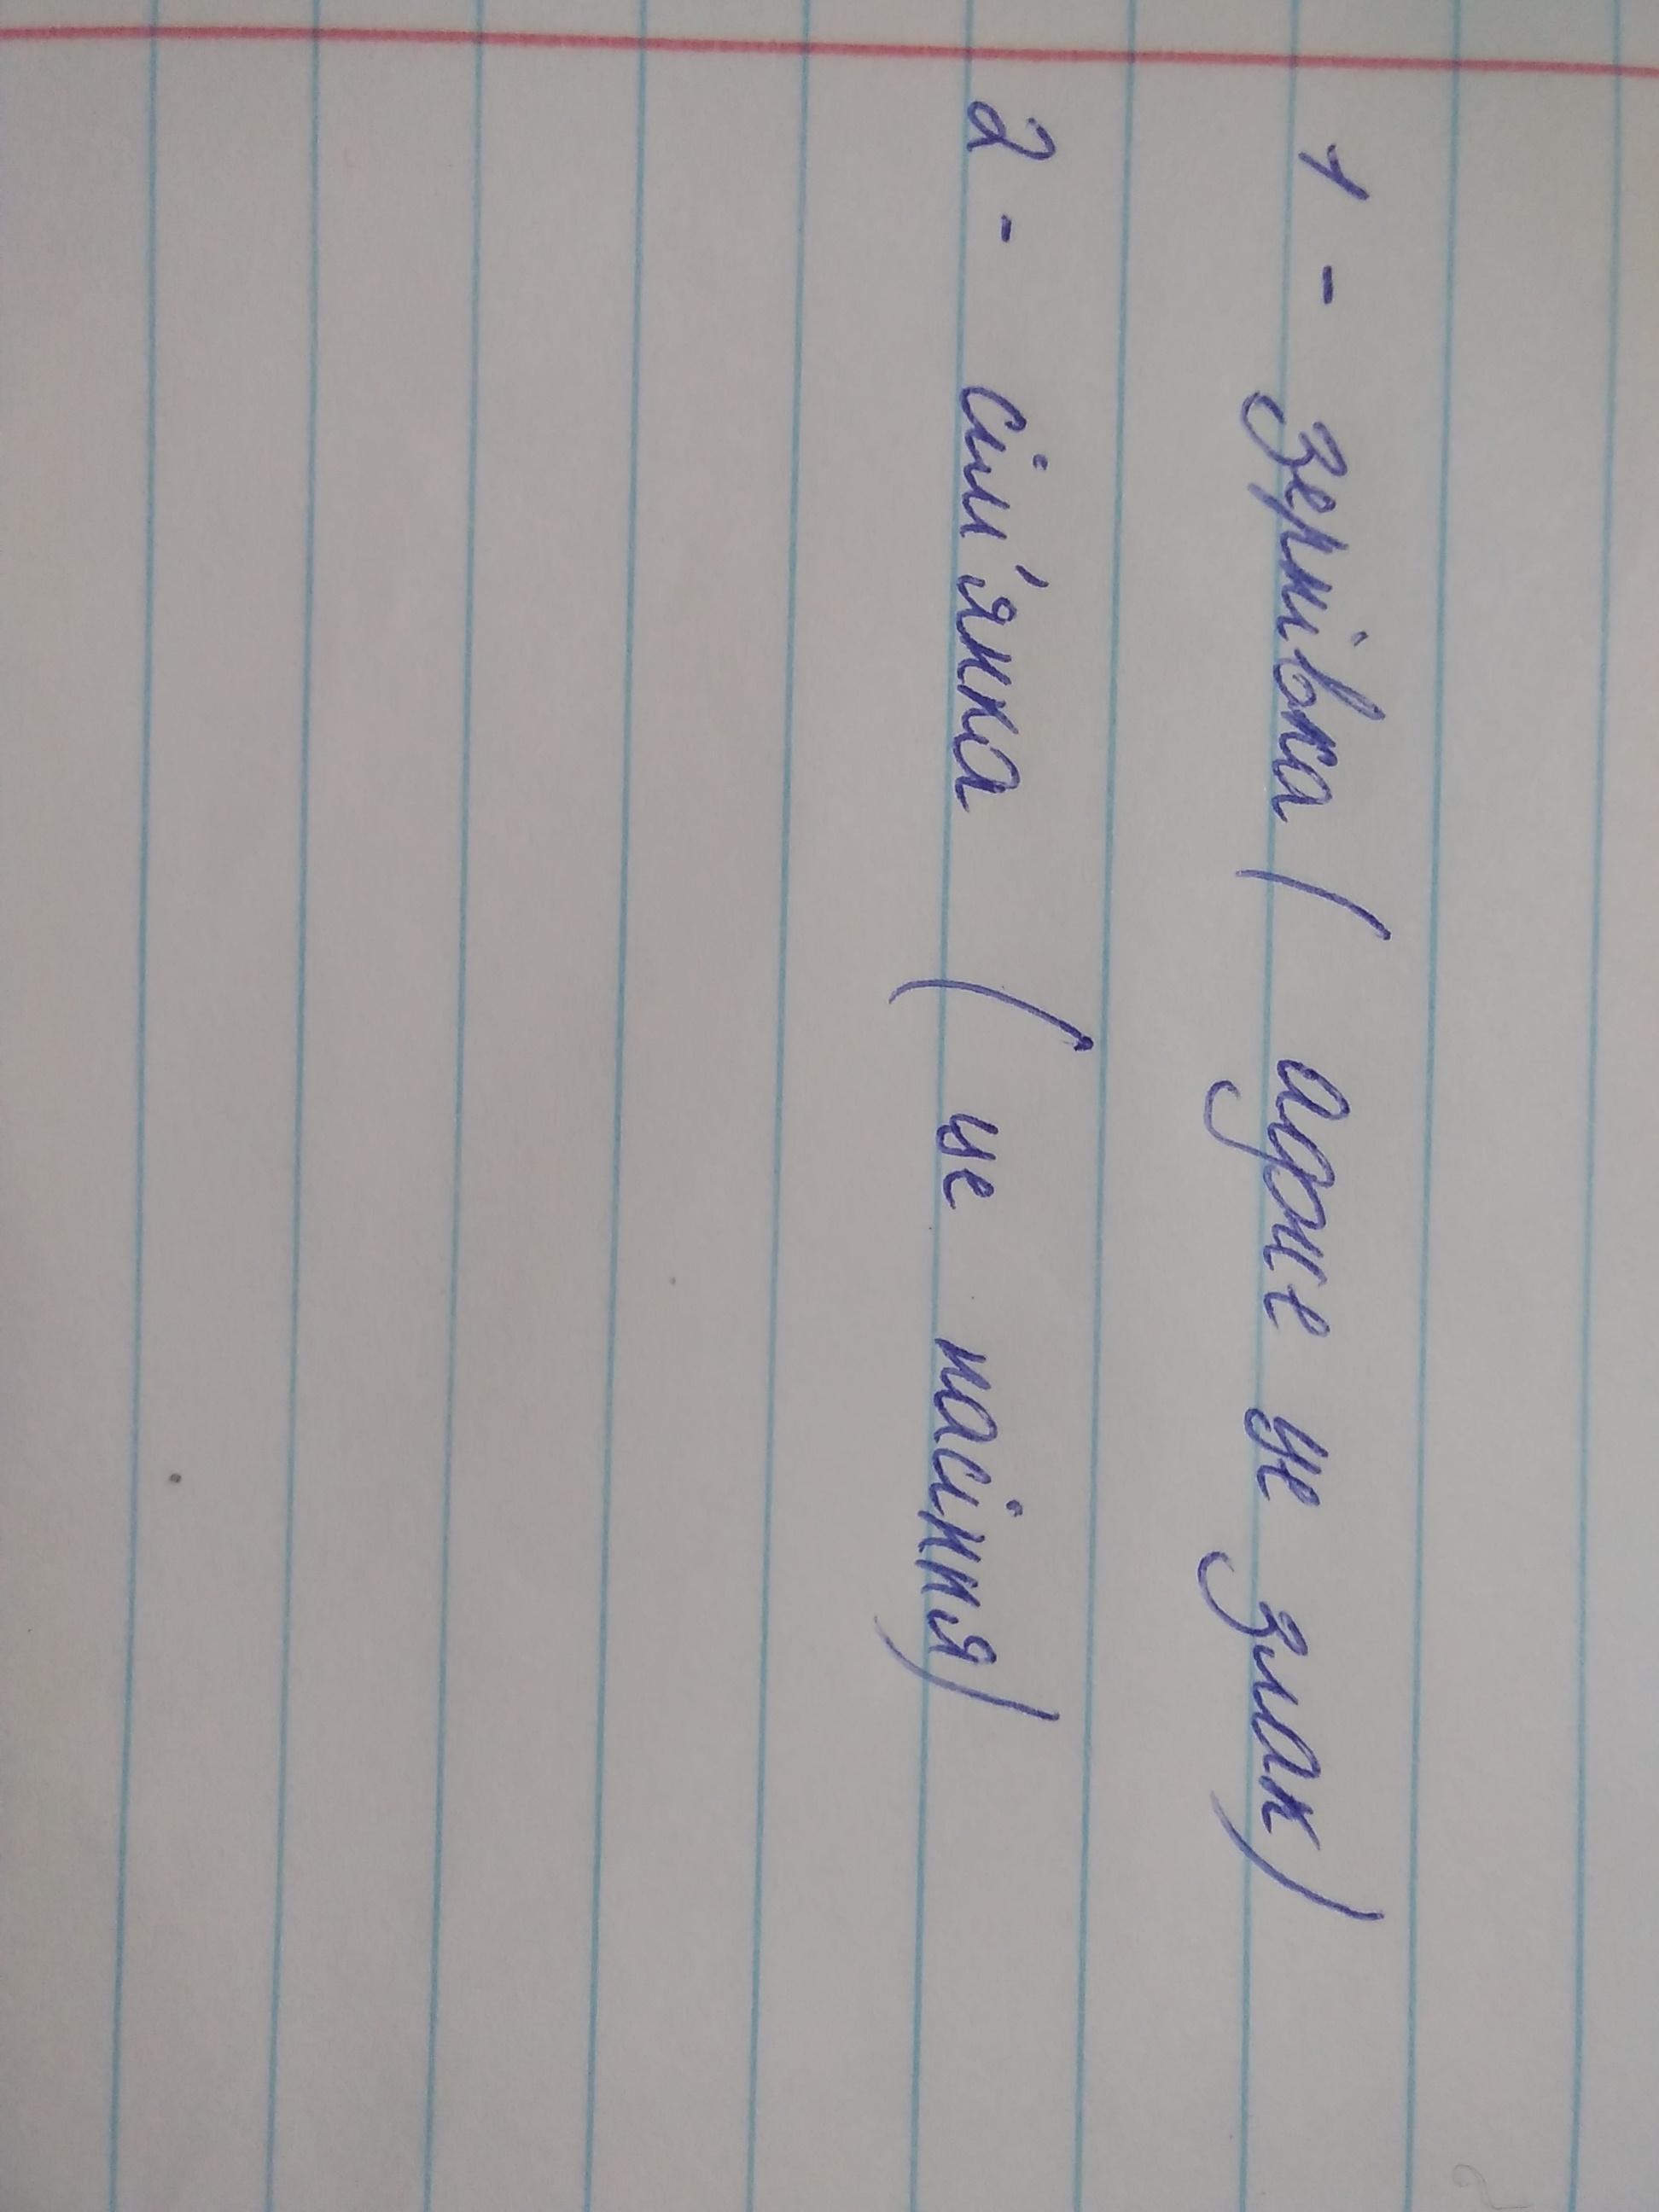 1 - зернівка ( адже це злак)
2 - сім'янка ( це насіння)